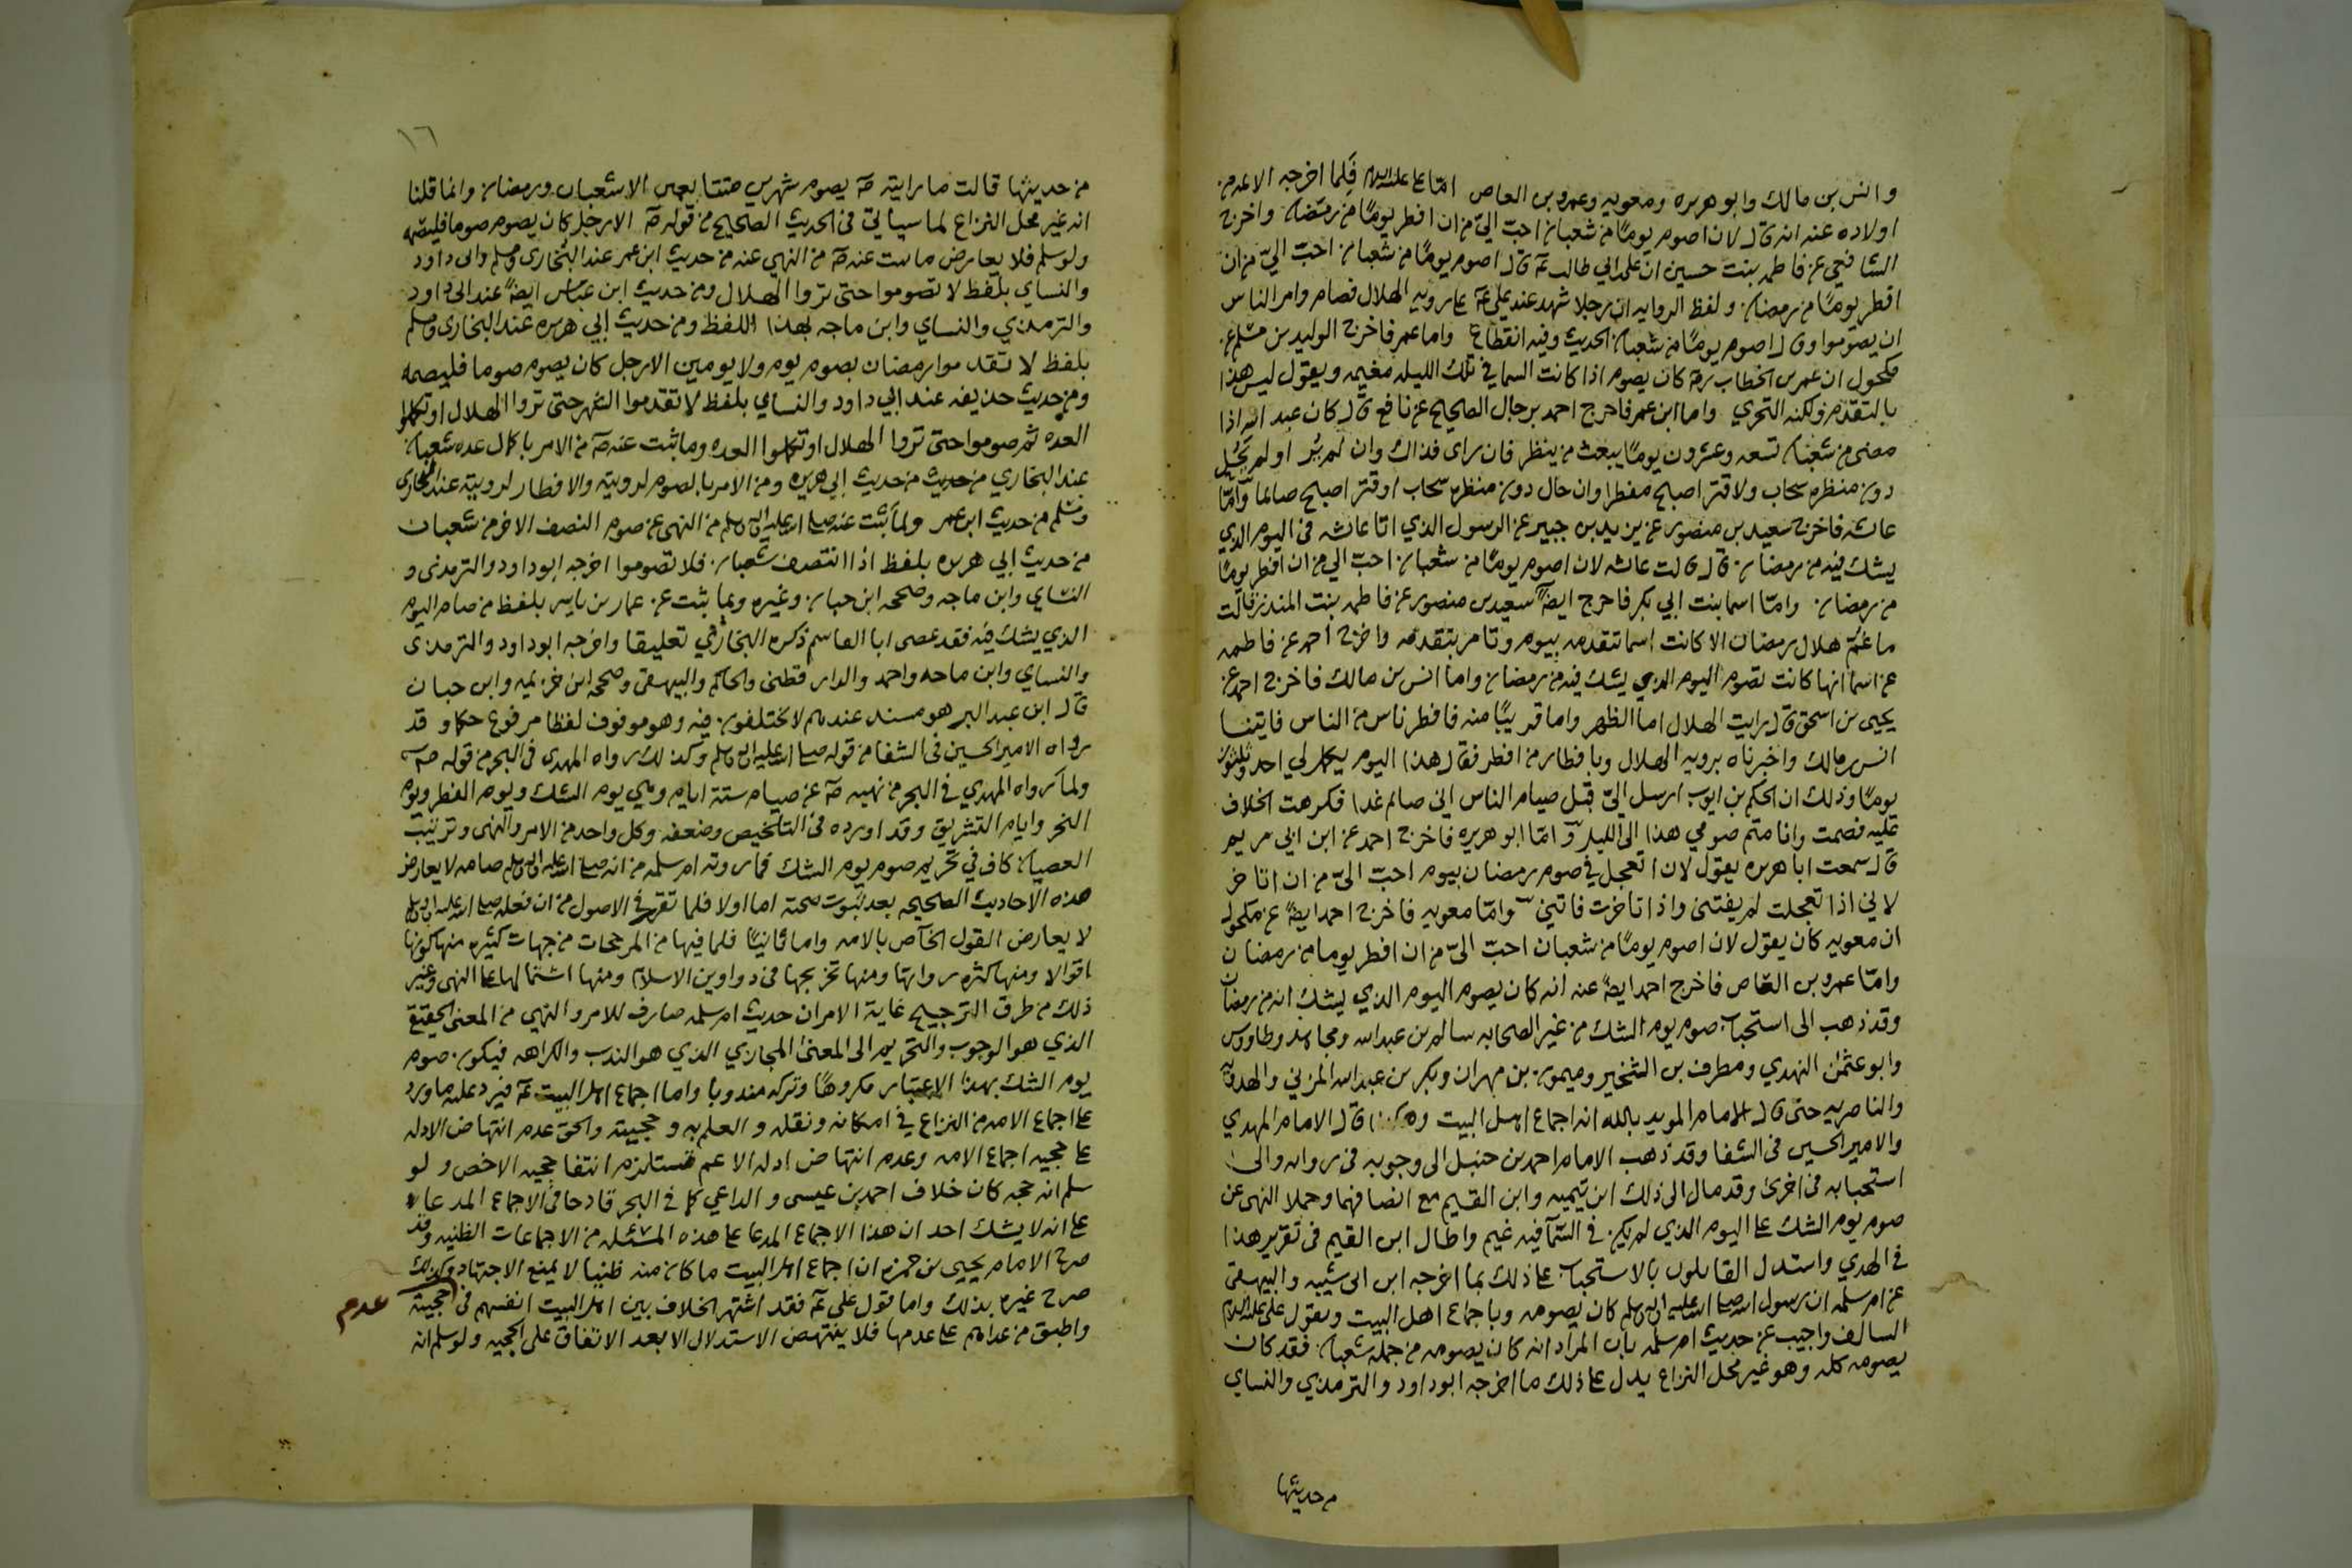 وانس بن مالك وابو هريره ومعويه وعمرو بن العاص اما علي عليه السلم فلما اخرجه الا عدم
اولاده عنه انه قال لان اصوم يومًا من شعبان احبّ اليّ من ان افطر يومًا من رمضان واخرج
الشافعي عن فاطمه بنت حسين ان علي بن ابي طالب عم قال اصوم يومًا من شعبان احبّ اليّ من ان
افطر يومًا من رمضان ولفظ الروايه ان رجلا شهد عند علي عم على رويه الهلال فصام وامر الناس
ان يصوموا وقال اصوم يومًا من شعبان الحديث وفيه انقطاع واما عمر فاخرج الوليد بن مسلم عن
مكحول ان عمر بن الخطاب رض كان يصوم اذا كانت السما في تلك الليله مغيمه ويقول ليس هذا
بالتقدم ولكنه التحري واما ابن عمر فاخرج احمد برجال الصحيح عن نافع قال كان عبد الله اذا
مضى من شعبان تسعه وعشرون يومًا يبعث من ينظر فان راى فذاك وان لم ير ولم يحُل
دون منظره سحاب ولا قتر اصبح مفطرا وان حال دون منظره سحاب او قتر اصبح صائما وامّا
عائشه فاخرج سعيد بن منصور عن يزيد بن جبير عن الرسول الذي اتا عائشه في اليوم الذي
يشك فيه من رمضان قال قالت عائشه لان اصوم يومًا من شعبان احبّ الي من ان افطر يومًا
من رمضان وامّا اسما بنت ابي بكر فاخرج ايضًا سعيد بن منصور عن فاطمه بنت المنذر قالت
ما غُمّ هلال رمضان الا كانت اسما تتقدمه بيوم وتامر بتقدمه واخرج احمد عن فاطمه
عن اسما انها كانت تصوم اليوم الذي يشك فيه من رمضان واما انس بن مالك فاخرج احمد عن
يحيى بن اسحق قال رايت الهلال اما الظهر واما قريبًا منه فافطر ناس من الناس فاتينا
انس بن مالك واخبرناه برويه الهلال وبافطار من افطر فقال هذا اليوم يكمل لي احد وثلثون
يومًا وذلك ان الحكم بن ايوب ارسل اليّ قبل صيام الناس اني صائم غدا فكرهت الخلاف
عليه فصمت وانا متم صومي هذا الى الليل وامّا ابو هريره فاخرج احمد عن ابن ابي مريم
قال سمعت ابا هريره يقول لان اتعجل في صوم رمضان بيوم احبّ اليّ من ان اتاخر
لاني اذا تعجلت لم يفتني واذا تاخرت فاتني وامّا معويه فاخرج احمد ايضًا عن مكحول
ان معويه كان يقول لان اصوم يومًا من شعبان احبّ اليّ من ان افطر يوما من رمضان
وامّا عمرو بن العاص فاخرج احمد ايضًا عنه انه كان يصوم اليوم الذي يشك انه من رمضان
وقد ذهب الى استحباب صوم يوم الشك من غير الصحابه سالم بن عبدالله ومجاهد وطاووس
وابو عثمن النهدي ومطرف بن الشخير وميمون بن مهران وبكر بن عبدالله المزني والهدويه
والناصريه حتى قال الامام المويد بالله انه اجماع اهل البيت وهكذا قال الامام المهدي
والامير الحسين في الشفا وقد ذهب الامام احمد بن حنبل الى وجوبه في روايه والى
استحبابه في اخرى وقد مال الى ذلك ابن تيميه وابن القيم مع انصافهما وحملا النهي عن
صوم يوم الشك على اليوم الذي لم يكن في السّما فيه غيم واطال ابن القيم في تقرير هذا
في الهدي واستدل القايلون بالاستحباب على ذلك بما اخرجه ابن ابي شيبه والبيهقي
عن ام سلمه ان رسول الله صلى الله عليه واله وسلم كان يصومه وباجماع اهل البيت وبقول علي عليه السلم
السالف واجيب عن حديث ام سلمه بان المراد انه كان يصومه من جمله شعبان فقد كان
يصومه كله وهو غير محل النزاع يدل على ذلك ما اخرجه ابو داود والترمذي والنساي
من حديثها
١٦
من حديثها قالت ما رايته صم يصوم شهرين متتابعين الا شعبان ورمضان وانما قلنا
انه غير محل النزاع لما سياتي في الحديث الصحيح من قوله صم الا رجل كان يصوم صوما فليصمه
ولو سلم فلا يعارض ما ثبت عنه صم من النهي عنه من حديث ابن عمر عند البخاري ومسلم وابي داود
والنساي بلفظ لا تصوموا حتى تروا الهلال ومن حديث ابن عباس ايضًا عند ابي داود
والترمذي والنساي وابن ماجه بهذا اللفظ ومن حديث ابي هريره عند البخاري ومسلم
بلفظ لا تقدموا رمضان بصوم يوم ولا يومين الا رجل كان يصوم صوما فليصمه
ومن حديث حذيفه عند ابي داود والنساي بلفظ لا تقدموا الشهر حتى تروا الهلال او تكملوا
العده ثم صوموا حتى تروا الهلال او تكملوا العده وما ثبت عنه صم من الامر باكمال عده شعبان
عند البخاري من حديث من حديث ابي هريره ومن الامر بالصوم لرويته والافطار لرويته عند البخاري
ومسلم من حديث ابن عمر ولما ثبت عنه صلى الله عليه واله وسلم من النهي عن صوم النصف الاخر من شعبان
من حديث ابي هريره بلفظ اذا انتصف شعبان فلا تصوموا اخرجه ابو داود والترمذي و
النساي وابن ماجه وصححه ابن حبان وغيره وبما ثبت عن عمار بن ياسر بلفظ من صام اليوم
الذي يشك فيه فقد عصى ابا القاسم ذكره البخاري تعليقا واخرجه ابو داود والترمذي
والنساي وابن ماجه واحمد والدار قطني والحاكم والبيهقي وصححه ابن خزيمه وابن حبان
قال ابن عبد البر هو مسند عندهم لا يختلفون فيه وهو موقوف لفظا مرفوع حكما وقد
رواه الامير الحسين في الشفا من قوله صلى الله عليه واله وسلم وكذلك رواه المهدي في البحر من قوله صم
ولما رواه المهدي في البحر من نهيه صم عن صيام ستة ايام وهي يوم الشك ويوم الفطر ويوم
النحر وايام التشريق وقد اورده في التلخيص وضعفه وكل واحد من الامر والنهي وترتيب
العصيان كاف في تحريم صوم يوم الشك فما روته ام سلمه من انه صلى الله عليه واله وسلم صامه لا يعارض
هذه الاحاديث الصحيحه بعد ثبوت صحته اما اولا فلما تقرر في الاصول من ان فعله صلى الله عليه واله وسلم
لا يعارض القول الخاص بالامه واما ثانيًا فلما فيها من المرجحات من جهات كثيره منها كونها
اقوالا ومنها كثره رواتها ومنها تخريجها في دواوين الاسلام ومنها اشتمالها على النهي وغير
ذلك من طرق الترجيح غاية الامر ان حديث ام سلمه صارف للامر والنهي من المعنى الحقيقي
الذي هو الوجوب والتحريم الى المعنى المجازي الذي هو الندب والكراهه فيكون صوم
يوم الشك بهذا الاعتبار مكروهًا وتركه مندوبا واما اجماع اهل البيت عم فيرد عليه ما ورد
على اجماع الامه من النزاع في امكانه ونقله والعلم به وحجيته والحق عدم انتهاض الادله
على حجيه اجماع الامه وعدم انتهاض ادله الاعم مستلزم انتفا حجيه الاخص ولو
سلم انه حجه كان خلاف احمد بن عيسى والداعي كما في البحر قادحا في الاجماع المدعا
على انه لا يشك احد ان هذا الاجماع المدعا على هذه المسئله من الاجماعات الظنيه وقد
صرح الامام يحيى بن حمزه ان اجماع اهل البيت ما كان منه ظنيا لا يمنع الاجتهاد وكذلك
صرح غيره بذلك واما قول علي عم فقد اشتهر الخلاف بين اهل البيت انفسهم في حجيته
عدم
واطبق من عداهم على عدمها فلا ينتهض الاستدلال الا بعد الاتفاق على الحجيه ولو سلم انه